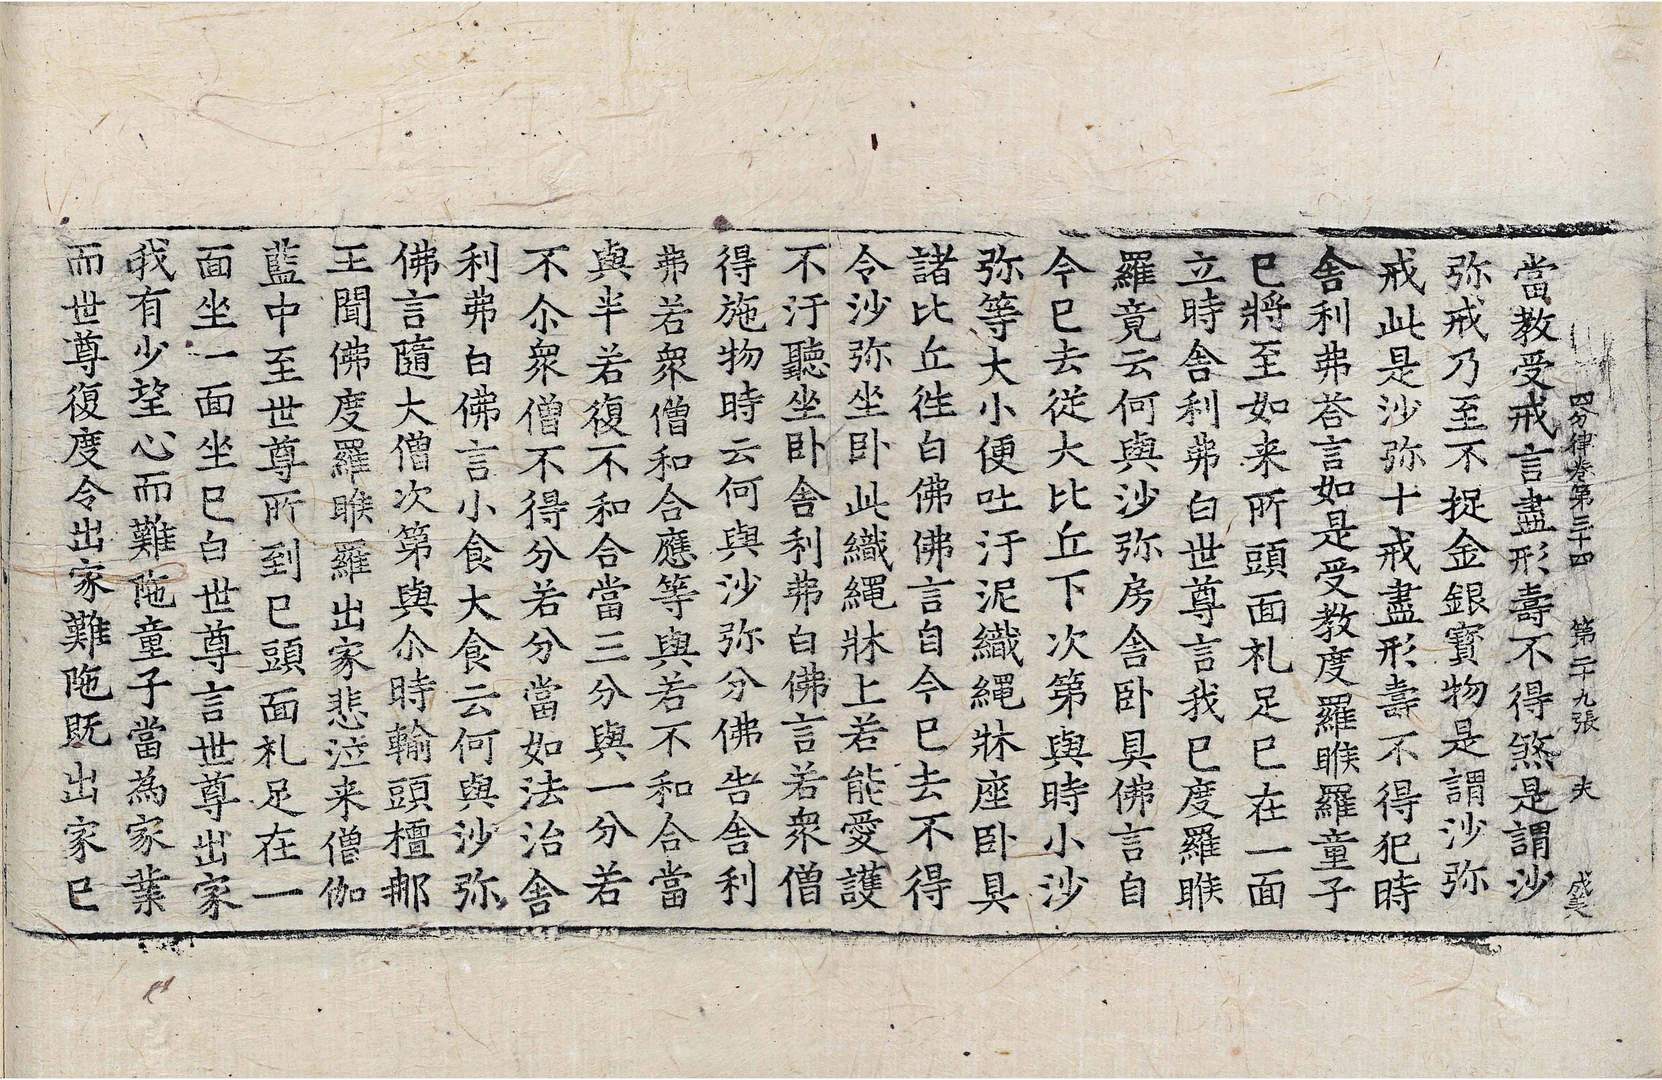 四分律卷第三十四 第二十九張 夫
當教受戒言盡形壽不得煞是謂沙
弥戒乃至不捉金銀寶物是謂沙弥
戒此是沙弥十戒盡形壽不得犯時
舍利弗荅言如是受教度羅睺羅童子
已將至如来所頭面礼足已在一面
立時舍利弗白世尊言我已度羅睺
羅竟云何與沙弥房舍卧具佛言自
今已去從大比丘下次第與時小沙
弥等大小便吐汙泥織繩牀座卧具
諸比丘徃白佛佛言自今已去不得
令沙弥坐卧此織繩牀上若能愛護
不汙聽坐卧舍利弗白佛言若衆僧
得施物時云何與沙弥分佛告舍利
弗若衆僧和合應等與若不和合當
與半若復不和合當三分與一分若
不尒衆僧不得分若分當如法治舍
利弗白佛言小食大食云何與沙弥
佛言隨大僧次第與尒時輸頭檀𨚗
王聞佛度羅睺羅出家悲泣来僧伽
藍中至世尊所到已頭面礼足在一
面坐一面坐已白世尊言世尊出家
我有少望心而難陁童子當為家業
而世尊復度令出家難陁既出家已